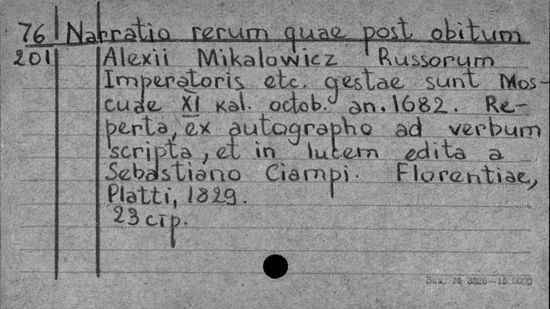 76 Narratio rerum quae post obitum
201 Alexii Mikalowicz Russorum
Imperatoris etc. gestae sunt Mos-
cuae XI kal. octob. an. 1682. Re-
perta, ex autographo ad verbum
scripta, et in lucem edita a
Sebastiano Ciampi. Florentiae,
Platti, 1829.
23 стр.
Зак. № 3826—15.000